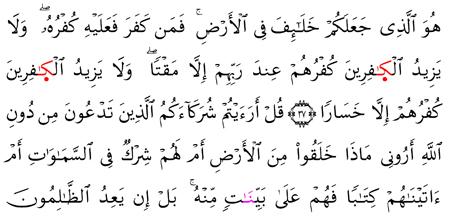 هُوَ ٱلَّذِى جَعَلَكُمْ خَلَـٰٓئِفَ فِى ٱلْأَرْضِ ۚ فَمَن كَفَرَ فَعَلَيْهِ كُفْرُهُۥ ۖ وَلَا
يَزِيدُ ٱلْكَـٰفِرِينَ كُفْرُهُمْ عِندَ رَبِّهِمْ إِلَّا مَقْتًا ۖ وَلَا يَزِيدُ ٱلْكَـٰفِرِينَ
كُفْرُهُمْ إِلَّا خَسَارًا ﴿٣٧﴾ قُلْ أَرَءَيْتُمْ شُرَكَآءَكُمُ ٱلَّذِينَ تَدْعُونَ مِن دُونِ
ٱللَّهِ أَرُونِى مَاذَا خَلَقُوا۟ مِنَ ٱلْأَرْضِ أَمْ لَهُمْ شِرْكٌ فِى ٱلسَّمَـٰوَٰتِ أَمْ
ءَاتَيْنَـٰهُمْ كِتَـٰبًا فَهُمْ عَلَىٰ بَيِّنَـٰتٍ مِّنْهُ ۚ بَلْ إِن يَعِدُ ٱلظَّـٰلِمُونَ